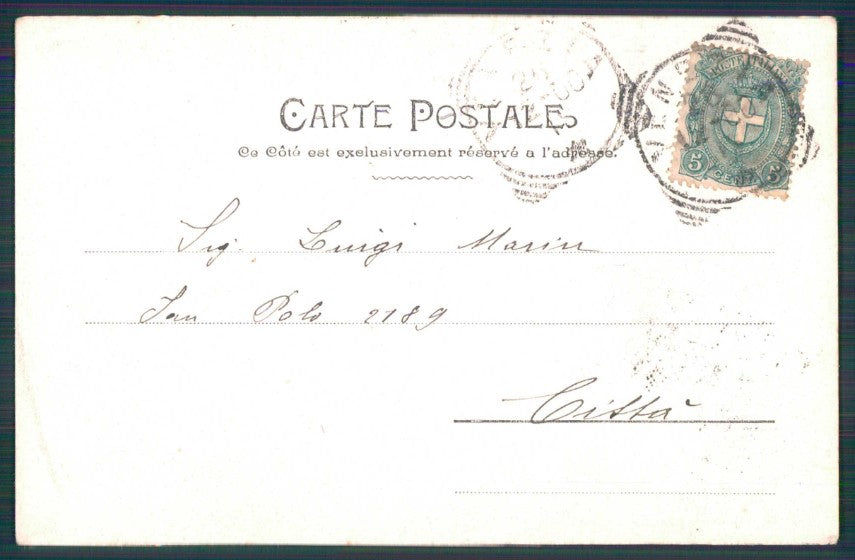 CARTE POSTALE
Ce Côté est exclusivement réservé a l'adresse.
POSTE ITALIANE
5 CENT. 5
Sig. Luigi Marin
San Polo 2189
Città